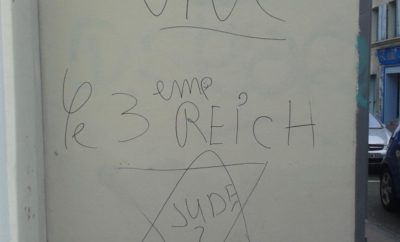 le 3eme REICH
JUDE